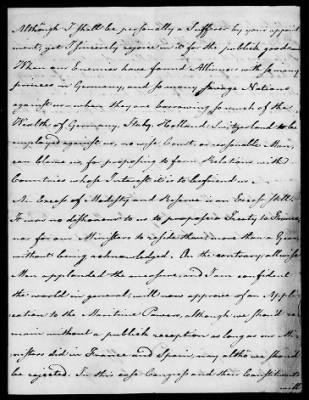 Although I shall be personally a Sufferer by your appoint
ment, yet I sincerely rejoice in it for the publick good.
When our Enemies have formed Alliances with so many
princes in Germany, and so many Savage Nations
against us, when they are borrowing so much of the
Wealth of Germany, Italy, Holland, Switzerland to be
employed against us, no wise Court, or reasonable Man,
can blame us for proposing to form Relations with
Countries whose Interest it is to befriend us.
An Excess of Modesty and Reserve is an Excess still.
It was no dishonour to us to propose a Treaty to France,
nor for our Ministers to reside there more than a Year,
without being acknowledged. On the contrary, all wise
Men applauded the measure, and I am confident
the world in general, will now approve of an Appli
cation to the Maritime Powers, although we should re
main without a publick reception as long as our Mi
nisters did in France and Spain, nay altho we should
be rejected. In this case Congress and their Constituents
will